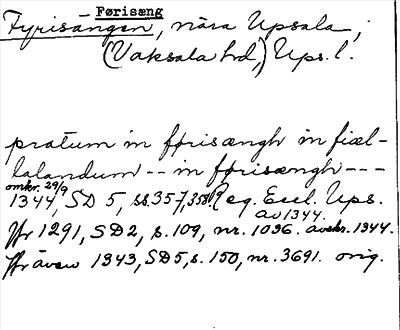 Førisæng
Fyrisängen, nära Upsala,
(Vaksala hd,) Ups. l.
pratum in førisængh in fiæl-
lalandum -- in førisængh ---
omkr. 29/9
1344, SD 5, ss. 357, 358, Reg. Eccl. Ups.
av 1344.
Jfr 1291, SD 2, s. 109, nr. 1036. avskr. 1344.
Jfr även 1343, SD 5, s. 150, nr. 3691. orig.